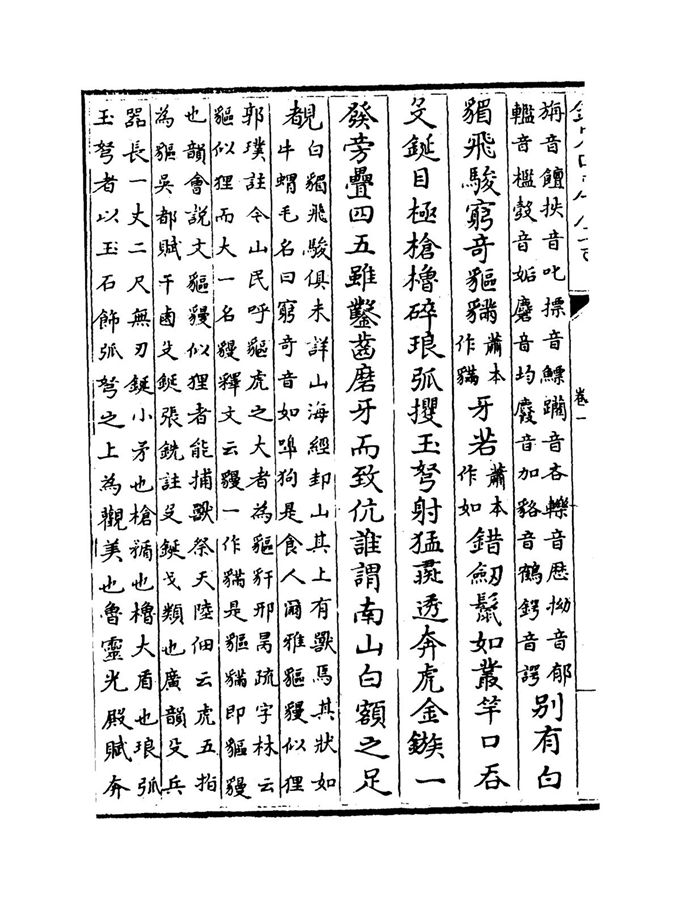 卷一
旃音饘抶音叱摽音鰾躪音吝轢音歷拗音郁
轞音檻彀音姤麏音均麚音加貉音鶴鍔音諤
別有白
猸飛駿窮奇貙蕭本作牙若蕭本作如錯劔鬣如叢竿口吞
殳鋋目極槍櫓碎琅弧攫玉弩射猛彘透奔虎金鏃一
發旁疊四五雖鑿齒磨牙而致伉誰謂南山白額之足
覩
白猸飛駿俱未詳山海經邽山其上有獸焉其狀如
牛蝟毛名曰窮奇音如嘷狗是食人爾雅貙䝡似狸
郭璞註今山民呼貙虎之大者為貙豻邢昺疏字林云
貙似狸而大一名䝡釋文云䝡一作是貙即貙䝡
也韻會說文貙䝡似狸者能捕獸祭天陸佃云虎五指
為貙吳都賦干鹵殳鋋張銑註殳鋋戈類也廣韻殳兵
器長一丈二尺無刃鋋小矛也槍矟也櫓大盾也琅弧
玉弩者以玉石飾弧弩之上為觀美也魯靈光殿賦奔